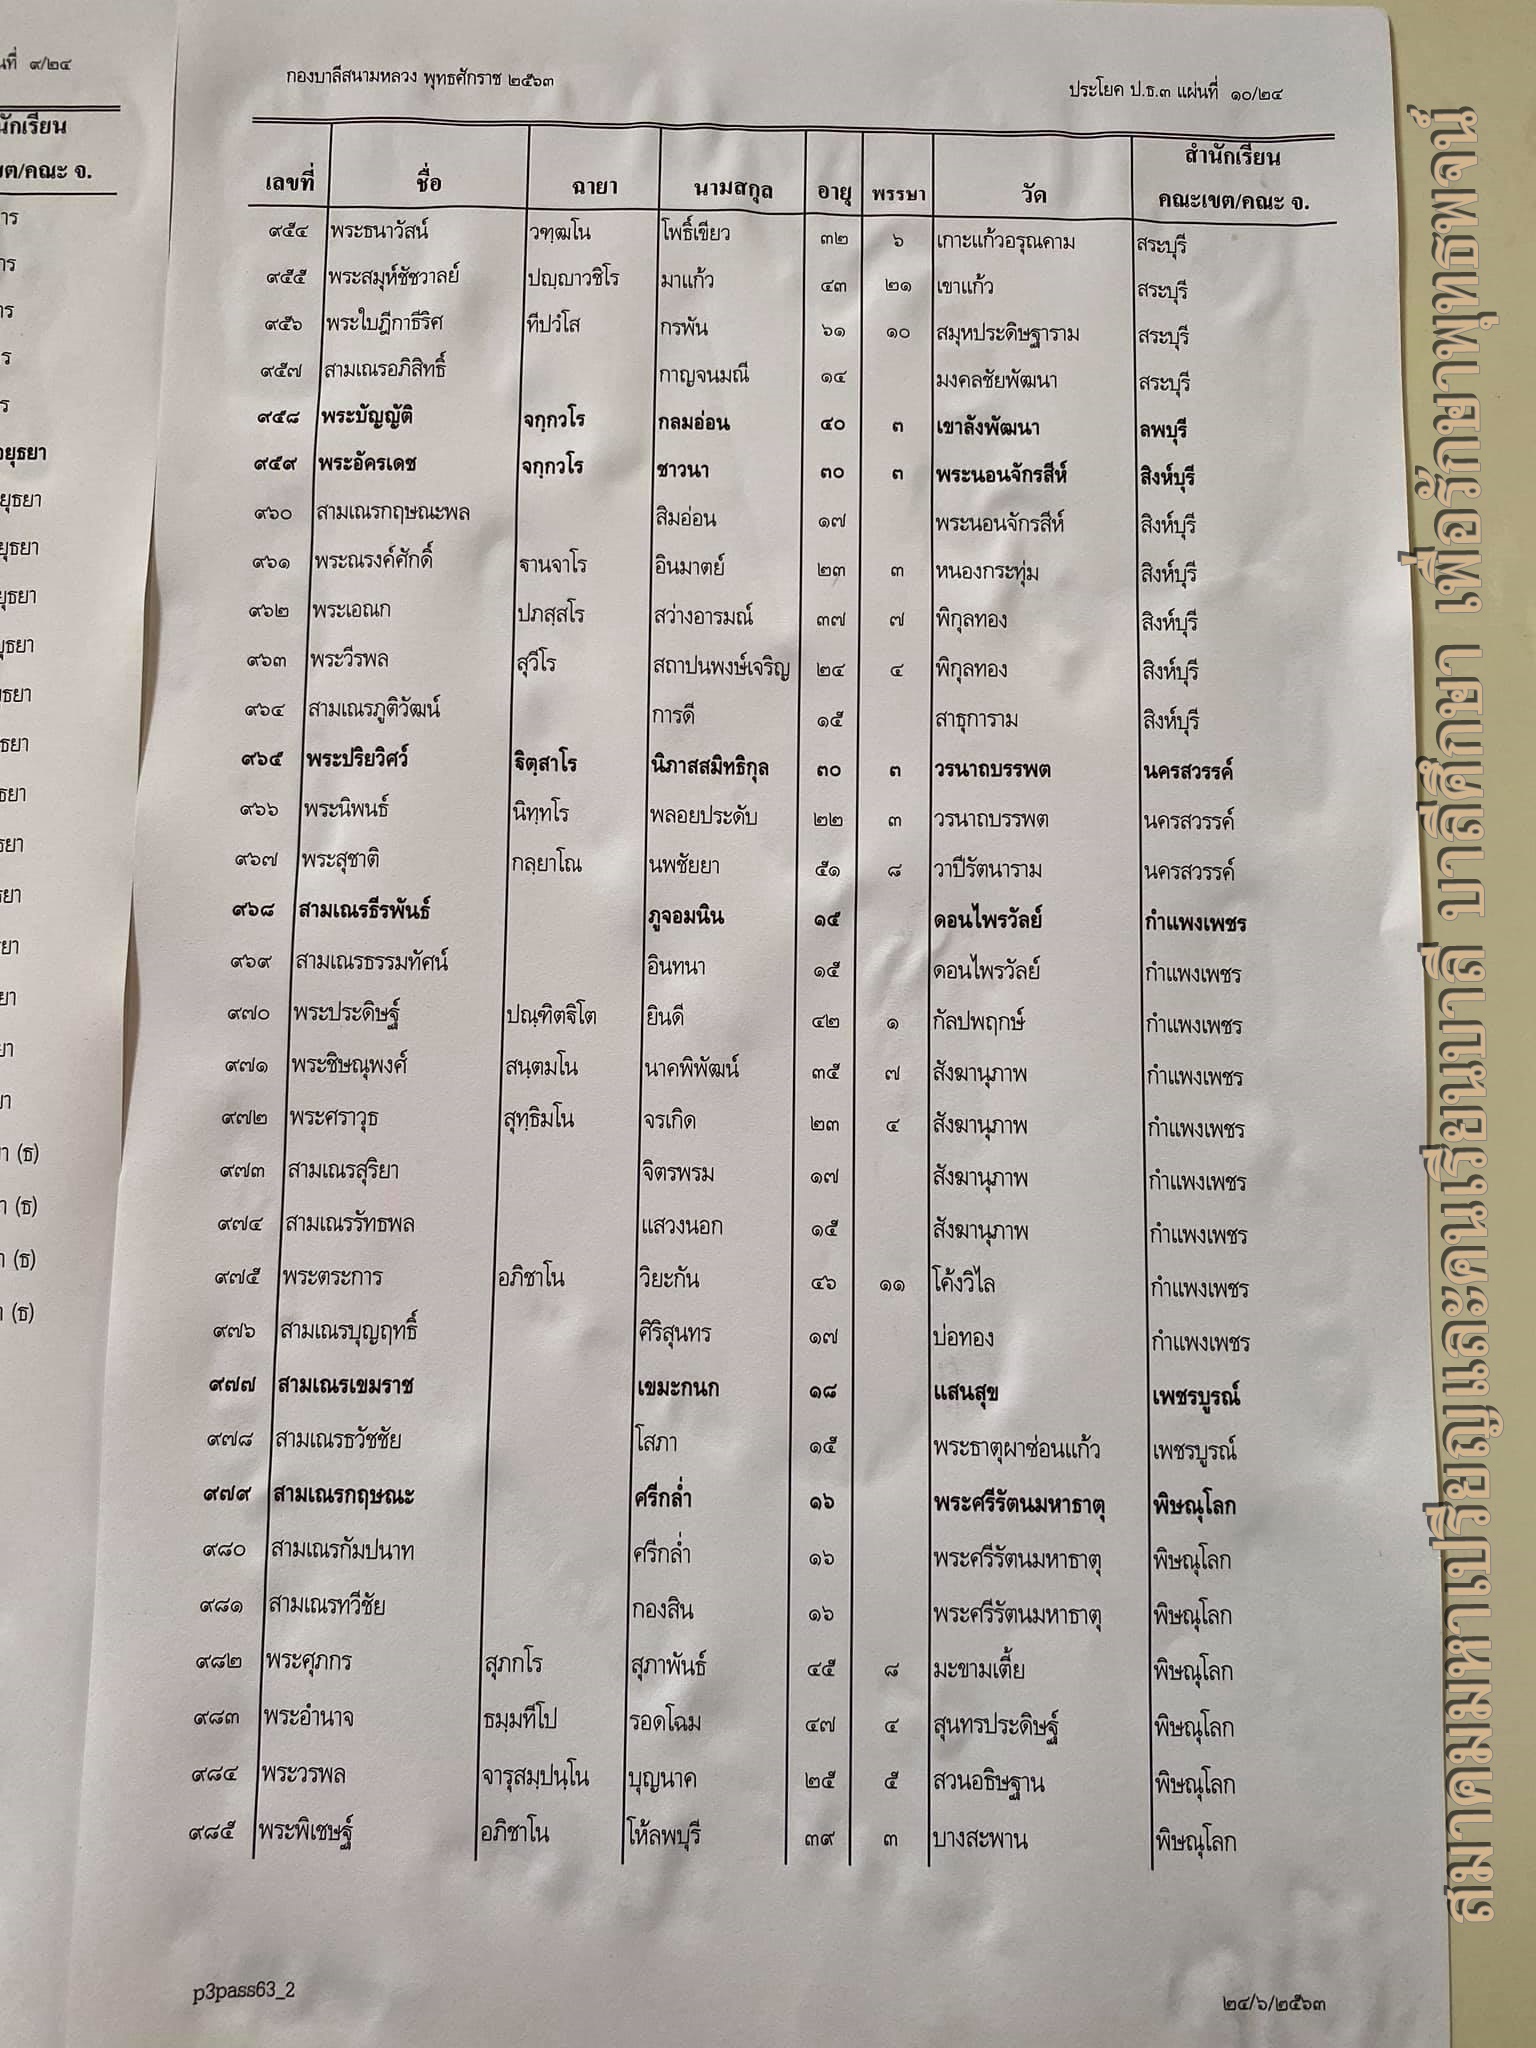 กองบาลีสนามหลวง พุทธศักราช ๒๕๖๓
ประโยค ป.ธ.๓ แผ่นที่ ๑๐/๒๔
เลขที่ ชื่อ ฉายา นามสกุล อายุ พรรษา วัด สำนักเรียน คณะเขต/คณะ จ.
๙๕๔ พระธนาวัสน์ วฑฺฒโน โพธิ์เขียว ๓๒ ๖ เกาะแก้วอรุณคาม สระบุรี
๙๕๕ พระสมุห์ชัชวาลย์ ปญฺญาวชิโร มาแก้ว ๔๓ ๒๑ เขาแก้ว สระบุรี
๙๕๖ พระใบฎีกาธีริศ ทีปวํโส กรพัน ๖๑ ๑๐ สมุหประดิษฐาราม สระบุรี
๙๕๗ สามเณรอภิสิทธิ์ กาญจนมณี ๑๔ มงคลชัยพัฒนา สระบุรี
๙๕๘ พระบัญญัติ จกฺกวโร กลมอ่อน ๔๐ ๓ เขาลังพัฒนา ลพบุรี
๙๕๙ พระอัครเดช จกฺกวโร ชาวนา ๓๐ ๓ พระนอนจักรสีห์ สิงห์บุรี
๙๖๐ สามเณรกฤษณะพล สิมอ่อน ๑๗ พระนอนจักรสีห์ สิงห์บุรี
๙๖๑ พระณรงค์ศักดิ์ ฐานจาโร อินมาตย์ ๒๓ ๓ หนองกระทุ่ม สิงห์บุรี
๙๖๒ พระเอณก ปภสฺสโร สว่างอารมณ์ ๓๗ ๗ พิกุลทอง สิงห์บุรี
๙๖๓ พระวีรพล สุวีโร สถาปนพงษ์เจริญ ๒๔ ๔ พิกุลทอง สิงห์บุรี
๙๖๔ สามเณรภูติวัฒน์ การดี ๑๕ สาธุการาม สิงห์บุรี
๙๖๕ พระปริยวิศว์ ฐิตฺสาโร นิภาสสมิทธิกุล ๓๐ ๓ วรนาถบรรพต นครสวรรค์
๙๖๖ พระนิพนธ์ นิทฺทโร พลอยประดับ ๒๒ ๓ วรนาถบรรพต นครสวรรค์
๙๖๗ พระสุชาติ กลฺยาโณ นพชัยยา ๕๑ ๘ วาปีรัตนาราม นครสวรรค์
๙๖๘ สามเณรธีรพันธ์ ภูจอมนิน ๑๕ ดอนไพรวัลย์ กำแพงเพชร
๙๖๙ สามเณรธรรมทัศน์ อินทนา ๑๕ ดอนไพรวัลย์ กำแพงเพชร
๙๗๐ พระประดิษฐ์ ปณฺฑิตฐิโต ยินดี ๔๒ ๑ กัลปพฤกษ์ กำแพงเพชร
๙๗๑ พระชิษณุพงศ์ สนฺตมโน นาคพิพัฒน์ ๓๕ ๗ สังฆานุภาพ กำแพงเพชร
๙๗๒ พระศราวุธ สุทฺธิมโน จรเกิด ๒๓ ๔ สังฆานุภาพ กำแพงเพชร
๙๗๓ สามเณรสุริยา จิตรพรม ๑๗ สังฆานุภาพ กำแพงเพชร
๙๗๔ สามเณรรัทธพล แสวงนอก ๑๕ สังฆานุภาพ กำแพงเพชร
๙๗๕ พระตระการ อภิชาโน วิยะกัน ๔๖ ๑๑ โค้งวิไล กำแพงเพชร
๙๗๖ สามเณรบุญฤทธิ์ ศิริสุนทร ๑๗ บ่อทอง กำแพงเพชร
๙๗๗ สามเณรเขมราช เขมะกนก ๑๘ แสนสุข เพชรบูรณ์
๙๗๘ สามเณรธวัชชัย โสภา ๑๕ พระธาตุผาซ่อนแก้ว เพชรบูรณ์
๙๗๙ สามเณรกฤษณะ ศรีกล่ำ ๑๖ พระศรีรัตนมหาธาตุ พิษณุโลก
๙๘๐ สามเณรกัมปนาท ศรีกล่ำ ๑๖ พระศรีรัตนมหาธาตุ พิษณุโลก
๙๘๑ สามเณรทวีชัย กองสิน ๑๖ พระศรีรัตนมหาธาตุ พิษณุโลก
๙๘๒ พระศุภกร สุภกโร สุภาพันธ์ ๔๕ ๘ มะขามเตี้ย พิษณุโลก
๙๘๓ พระอำนาจ ธมฺมทีโป รอดโฉม ๔๗ ๔ สุนทรประดิษฐ์ พิษณุโลก
๙๘๔ พระวรพล จารุสมฺปนฺโน บุญนาค ๒๕ ๕ สวนอธิษฐาน พิษณุโลก
๙๘๕ พระพิเชษฐ์ อภิชาโน โห้ลพบุรี ๓๙ ๓ บางสะพาน พิษณุโลก
p3pass63_2
๒๔/๖/๒๕๖๓
สมาคมมหาเปรียญและคนเรียนบาลี บาลีศึกษา เพื่อรักษาพุทธพจน์